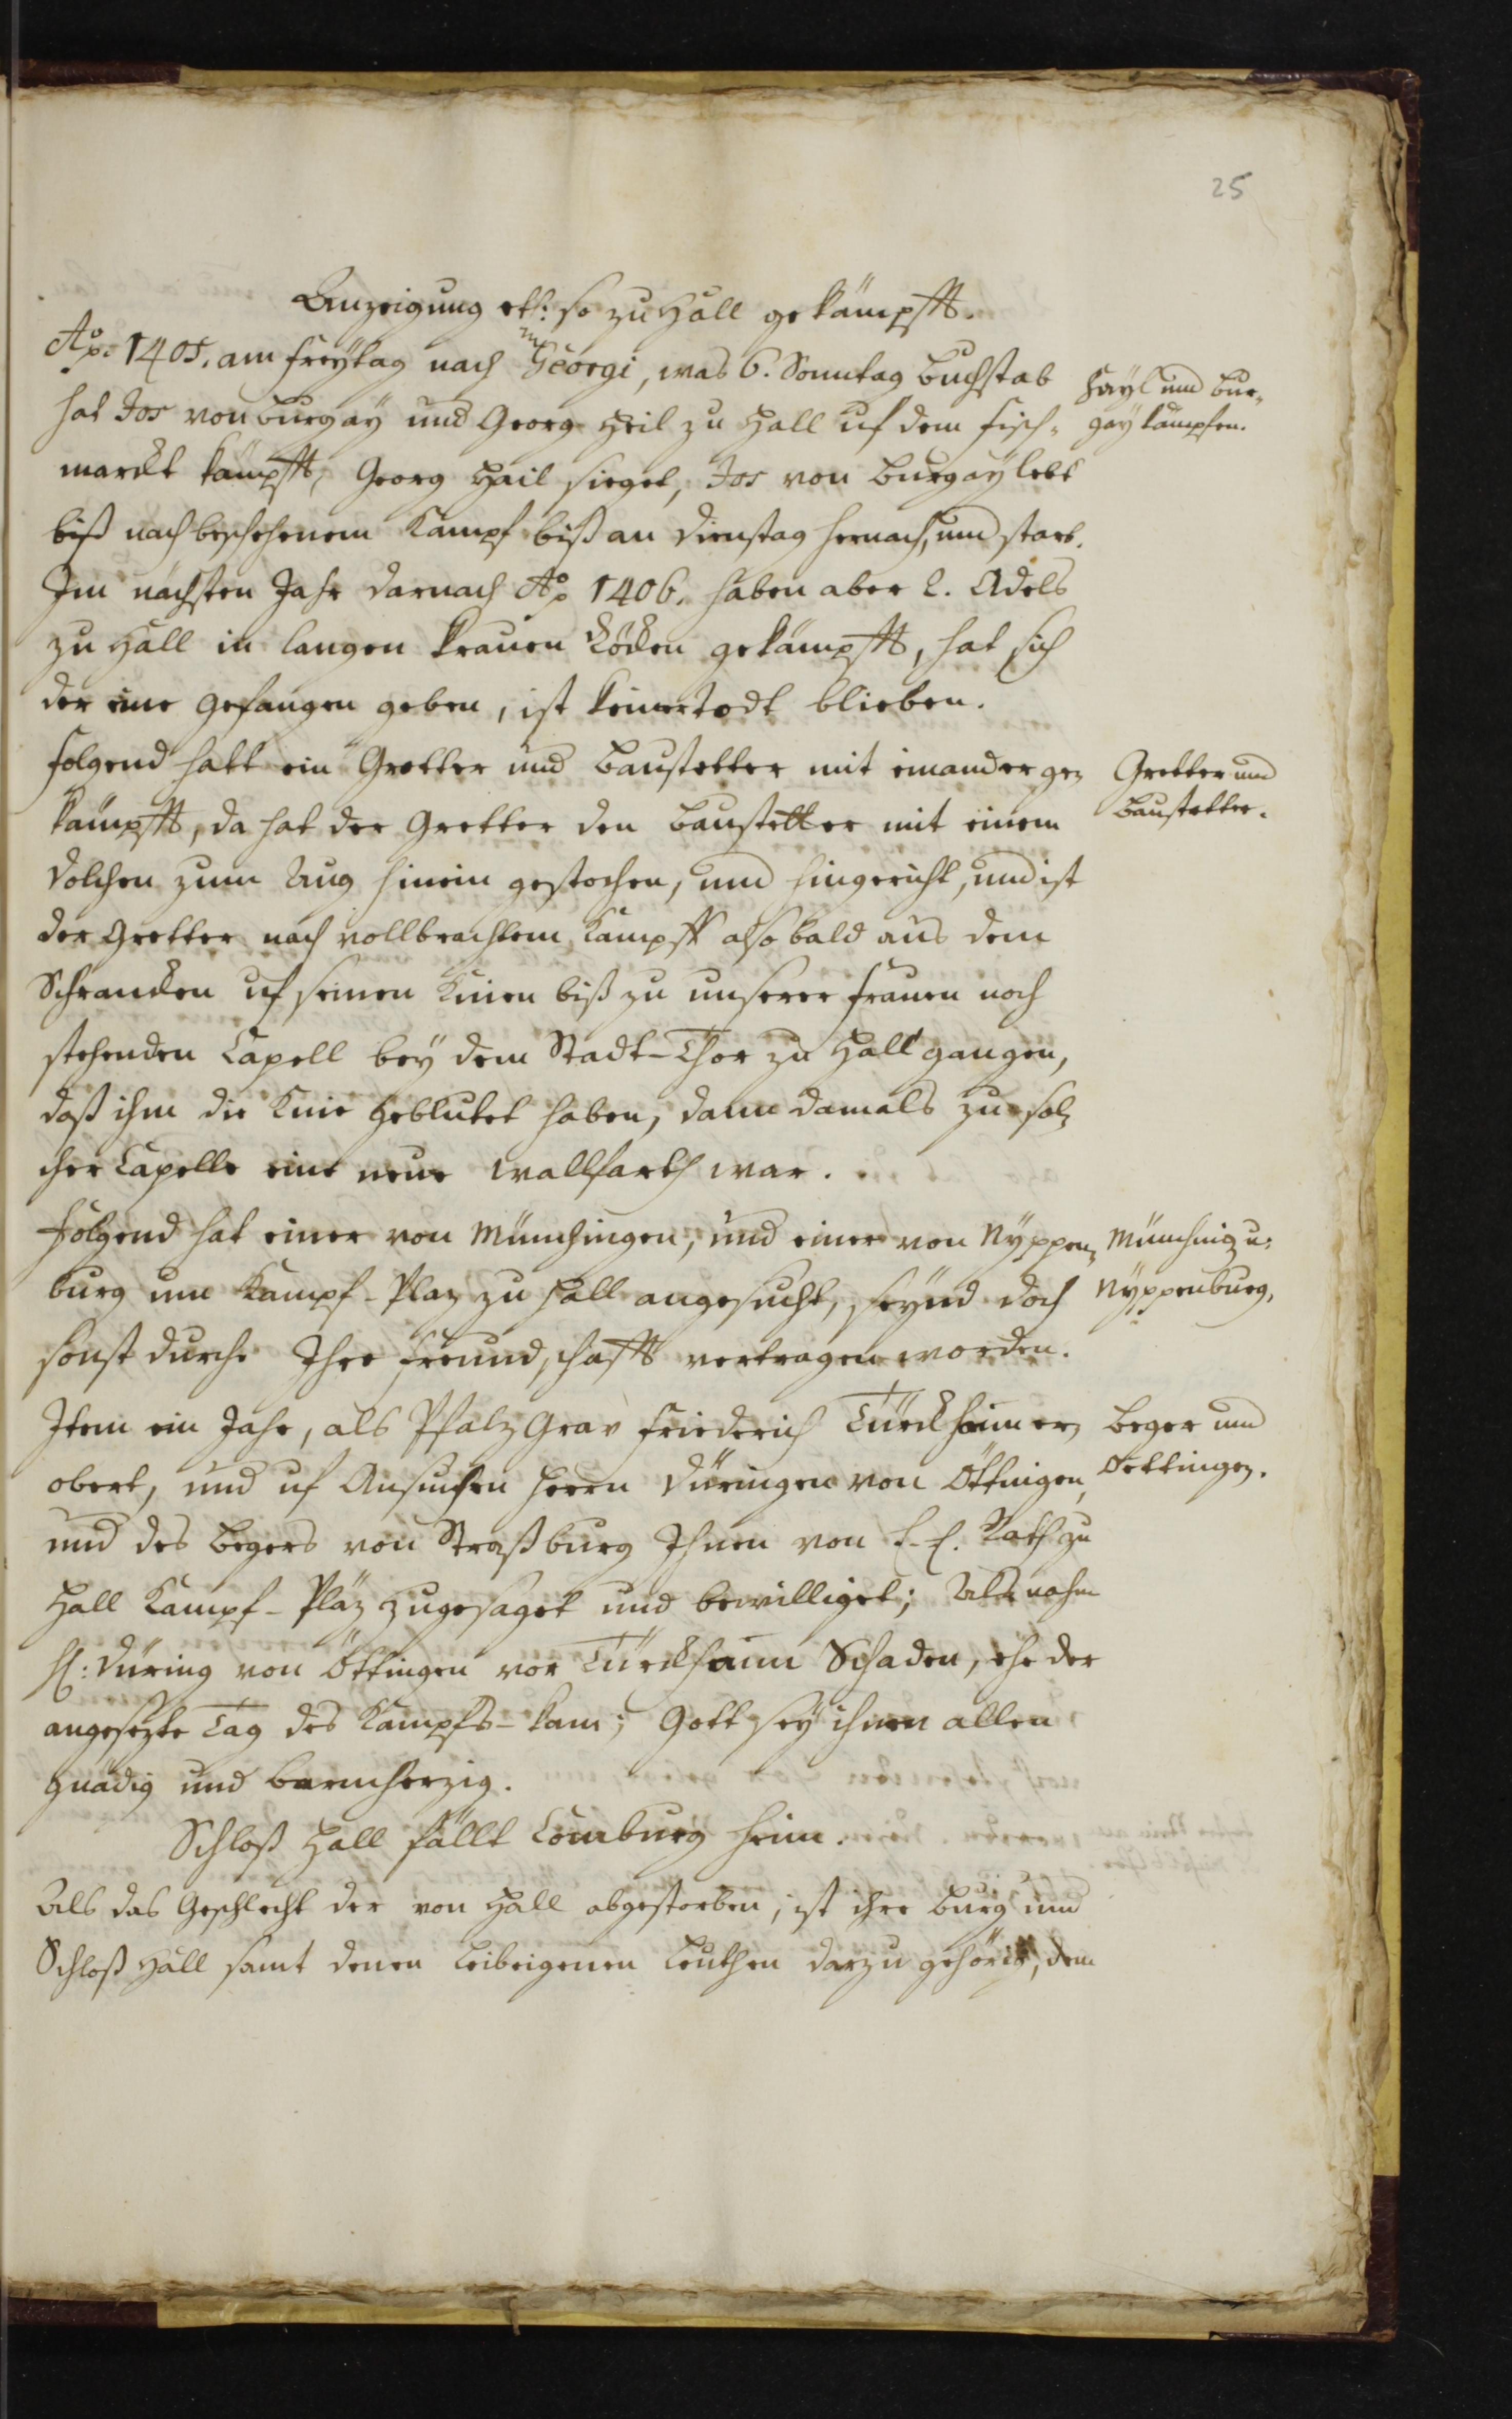 25
Anzeigung etl: so zu Hall gekämpfft.
Ao: 1405. am Freytag nach Georgi, was 6. Sonntag Buchstab
Hayl und Bur-
hat Jos von Burgaÿ und Georg Heil zu Hall uf dem Fisch-
gaÿ kämpfen.
marckt kämpfft, Georg Hail sieget, Jos von Burgaÿ lebt
biß nach beschehenem Kampf biß an Dienstag hernach, und starb.
Im nächsten Jahr darnach Ao 1406. haben aber 2. Adels
zu Hall in langen Frauen Röcken gekämpfft, hat sich
der eine gefangen geben, ist keiner todt blieben.
Folgend hatt ein Gretter und Baustetter mit einander ge-
Gretter und
kämpfft, da hat der Gretter den Baustetter mit einem
Baustetter.
Dolchen zum Aug hinein gestochen, und hingericht, und ist
der Gretter nach vollbrachtem Kampff also bald aus dem
Schrancken uf seinen Knien biß zu unserer Frauen noch
stehenden Capell bey dem Stadt-Thor zu Hall gangen,
daß ihm die Knie geblutet haben, dann damals zu sol-
cher Capelle eine neue Wallfarth war.
Folgend hat einer von Münchingen, und einer von Nÿppen-
Münching u:
burg um Kampf-Plaz zu Hall angesucht, seynd doch
Nÿppenburg,
sonst durch Ihre Freundschafft vertragen worden.
Item ein Jahr, als PfalzGrav Friederich Türckheim er-
Beger und
obert, und uf Ansuchen Herrn Düringen von Öttingen,
Oettingen.
und des Begers von Straßburg Ihnen von E. E. Rath zu
Hall Kampf-Plaz zugesaget und bewilliget; Als nahm
H: Düring von Öttingen vor Türckheim Schaden, ehe der
angesezte Tag des Kampfs-kam; Gott sey ihnen allen
gnädig und barmherzig.
Schloß Hall fällt Comburg heim.
Als das Geschlecht der von Hall abgestorben, ist ihre Burg und
Schloß Hall samt denen Leibeigenen Leuthen darzu gehörig, dem